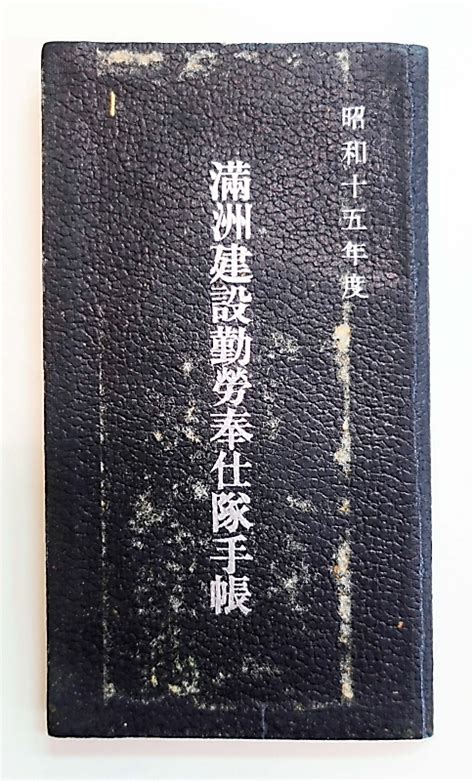 昭和十五年度
滿洲建設勤勞奉仕隊手帳